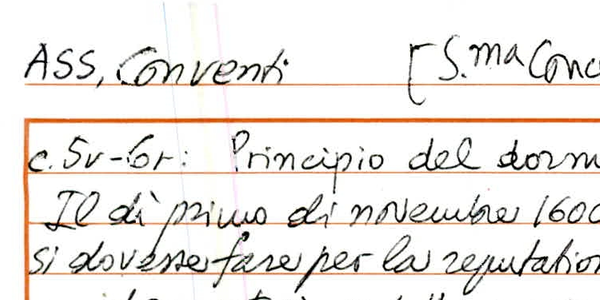 ASS, Conventi [S.ma Conc
c. 5v-6r: Principio del dorm
Il dì primo di novembre 1600
si dovesse fare per la reputation